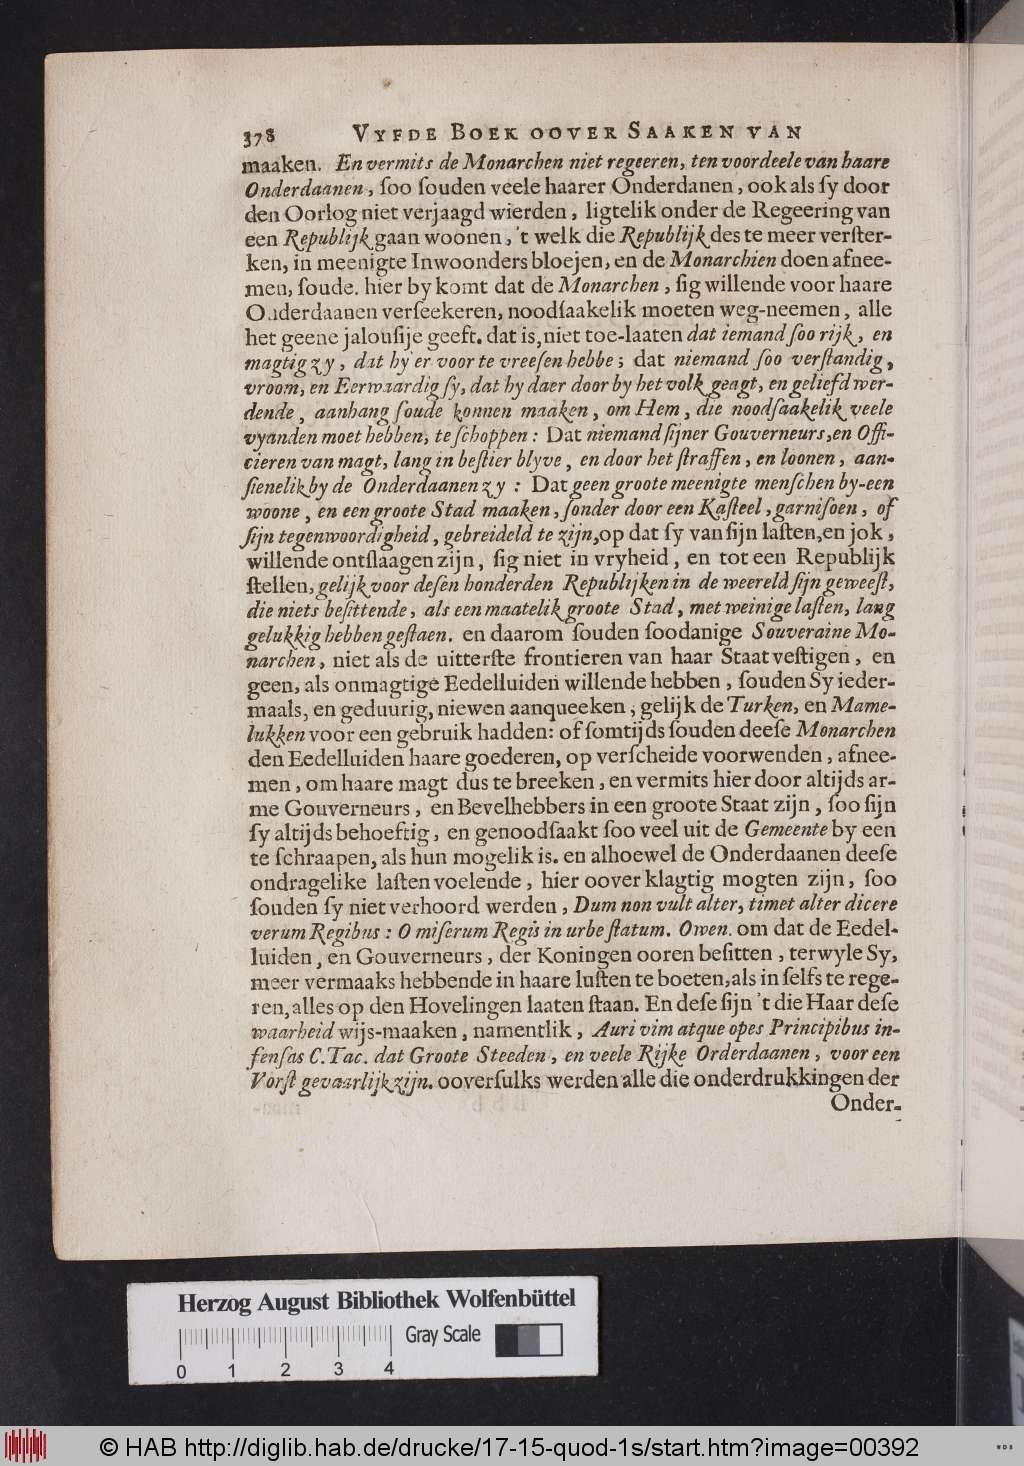 378 VYFDE BOEK OOVER SAAKEN VAN
maaken. En vermits de Monarchen niet regeeren, ten voordeele van haare
Onderdaanen, ſoo ſouden veele haarer Onderdanen, ook als ſy door
den Oorlog niet verjaagd wierden, ligtelik onder de Regeering van
een Republijk gaan woonen, 't welk die Republijk des te meer verſter-
ken, in meenigte Inwoonders bloejen, en de Monarchien doen afnee-
men, ſoude. hier by komt dat de Monarchen, ſig willende voor haare
Onderdaanen verſeekeren, noodſaakelik moeten weg-neemen, alle
het geene jalouſije geeft. dat is, niet toe-laaten dat iemand ſoo rijk, en
magtig zy, dat hy er voor te vreeſen hebbe; dat niemand ſoo verſtandig,
vroom, en Eerwaardig ſy, dat hy daer door by het volk geagt, en geliefd wer-
dende, aanhang ſoude konnen maaken, om Hem, die noodſaakelik veele
vyanden moet hebben, te ſchoppen: Dat niemand ſijner Gouverneurs, en Offi-
cieren van magt, lang in beſtier blyve, en door het ſtraffen, en loonen, aan-
ſienelik by de Onderdaanen zy: Dat geen groote meenigte menſchen by-een
woone, en een groote Stad maaken, ſonder door een Kaſteel, garniſoen, of
ſijn tegenwoordigheid, gebreideld te zijn, op dat ſy van ſijn laſten, en jok,
willende ontſlaagen zijn, ſig niet in vryheid, en tot een Republijk
ſtellen, gelijk voor deſen honderden Republijken in de weereld ſijn geweeſt,
die niets beſittende, als een maatelik groote Stad, met weinige laſten, lang
gelukkig hebben geſtaen. en daarom ſouden ſoodanige Souveraine Mo-
narchen, niet als de uitterſte frontieren van haar Staat veſtigen, en
geen, als onmagtige Eedelluiden willende hebben, ſouden Sy ieder-
maals, en geduurig, niewen aanqueeken; gelijk de Turken, en Mame-
lukken voor een gebruik hadden: of ſomtijds ſouden deeſe Monarchen
den Eedelluiden haare goederen, op verſcheide voorwenden, afnee-
men, om haare magt dus te breeken, en vermits hier door altijds ar-
me Gouverneurs, en Bevelhebbers in een groote Staat zijn, ſoo ſijn
ſy altijds behoeftig, en genoodſaakt ſoo veel uit de Gemeente by een
te ſchraapen, als hun mogelik is. en alhoewel de Onderdaanen deeſe
ondragelike laſten voelende, hier oover klagtig mogten zijn, ſoo
ſouden ſy niet verhoord werden, Dum non vult alter, timet alter dicere
verum Regibus: O miſerum Regis in urbe ſtatum. Owen. om dat de Eedel-
luiden, en Gouverneurs, der Koningen ooren beſitten, terwyle Sy,
meer vermaaks hebbende in haare luſten te boeten, als in ſelfs te rege-
ren, alles op den Hovelingen laaten ſtaan. En deſe ſijn 't die Haar deſe
waarheid wijs-maaken, namentlik, Auri vim atque opes Principibus in-
fenſas C. Tac. dat Groote Steeden, en veele Rijke Orderdaanen, voor een
Vorſt gevaarlijk zijn. ooverſulks werden alle die onderdrukkingen der
Onder-
Herzog August Bibliothek Wolfenbüttel
Gray Scale
0 1 2 3 4
© HAB http://diglib.hab.de/drucke/17-15-quod-1s/start.htm?image=00392